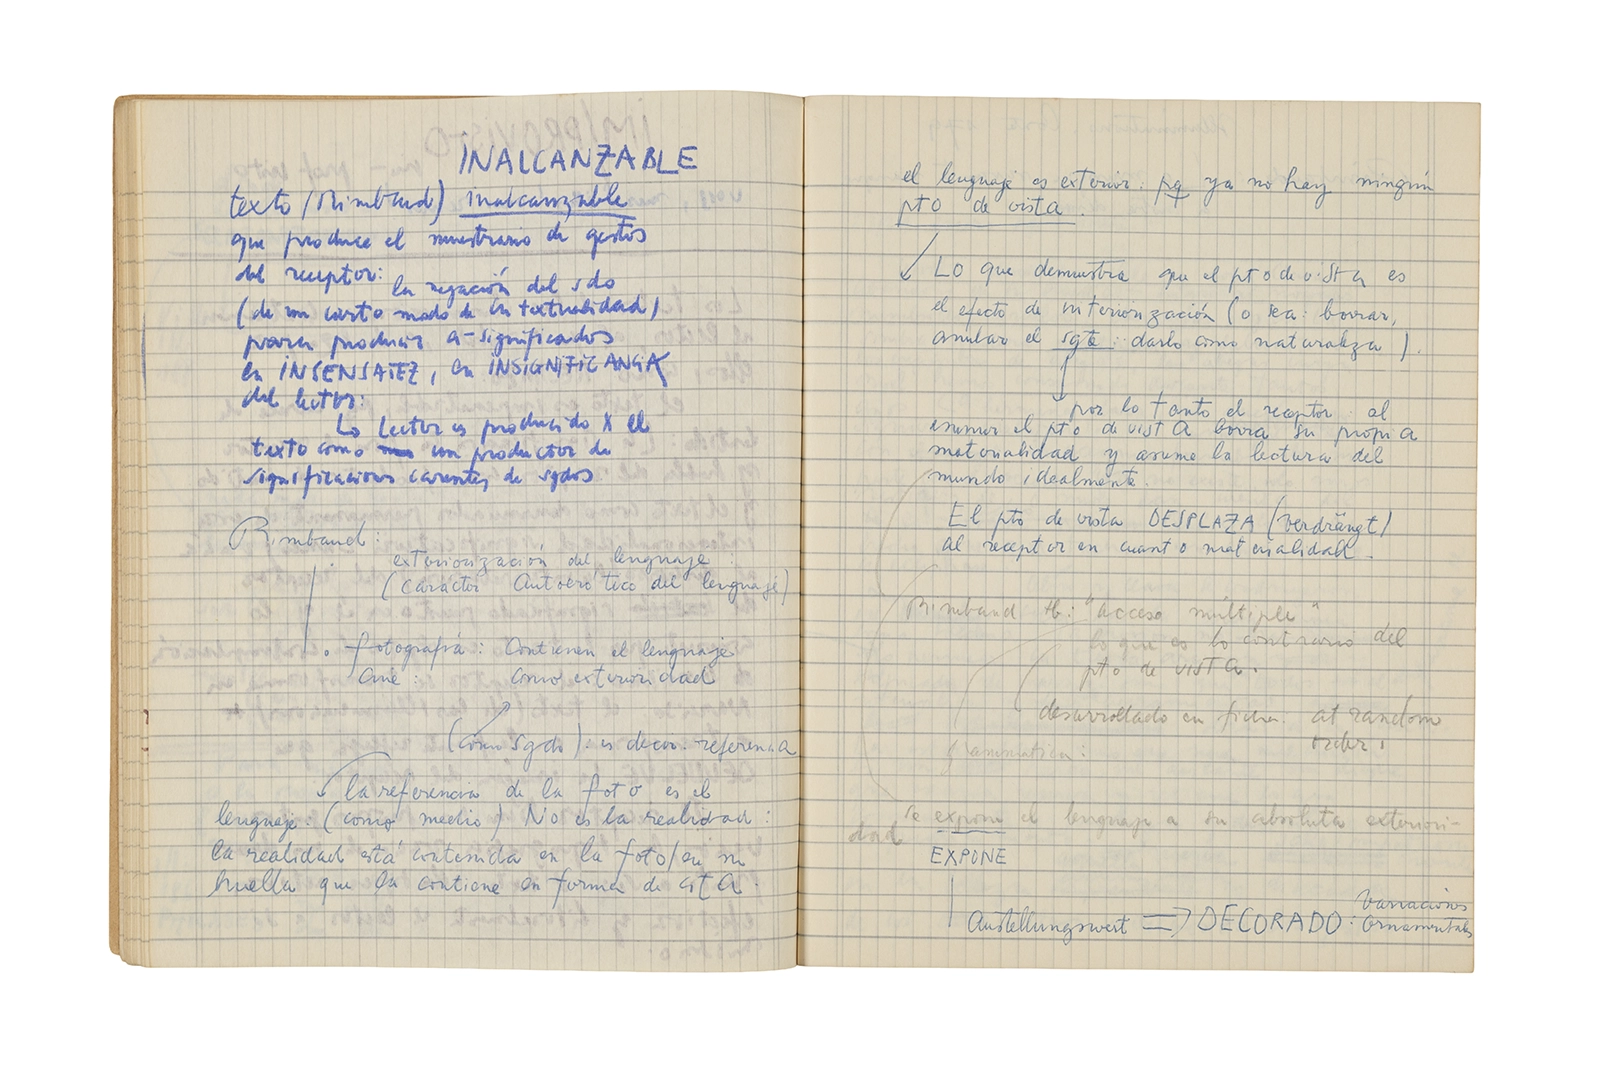 INALCANZABLE
texto / Rimbaud) inalcanzable
que produce el muestrario de gestos
del receptor:
la negación del sdo
(de un cierto modo de intextualidad)
para producir a-significados
en INSENSATEZ, en INSIGNIFICANCIA
del lector:
Lo Lector es producido X el
texto como un productor de
significaciones carentes de sgdos
Rimbaud:
exteriorización del lenguaje:
(carácter Autoerótico del lenguaje)
fotografía: Contienen el lenguaje
Cine: como exterioridad
(como sgdo): es decir. referencia
la referencia de la foto es el
lenguaje: (como medio) No es la realidad:
la realidad está contenida en la foto/en su
huella que la contiene en forma de cita.
el lenguaje es exterior: pq ya no hay ningún
pto de vista.
Lo que demuestra que el pto de vista es
el efecto de interiorización (o sea: borrar,
anular el sgte: darlo como naturaleza).
por lo tanto el receptor: al
asumir el pto de vista borra su propia
materialidad y asume la lectura del
mundo idealmente.
El pto de vista DESPLAZA (verdrängt)
al receptor en cuanto materialidad.
Rimbaud tb: "acceso múltiple"
lo que es lo contrario del
pto de vista.
desarrollado en fichas. at random
order!
grammatica:
se expone el lenguaje a su absoluta exteriori-
dad
EXPONE
Austellungswert => DECORADO: Variaciones
Ornamentales